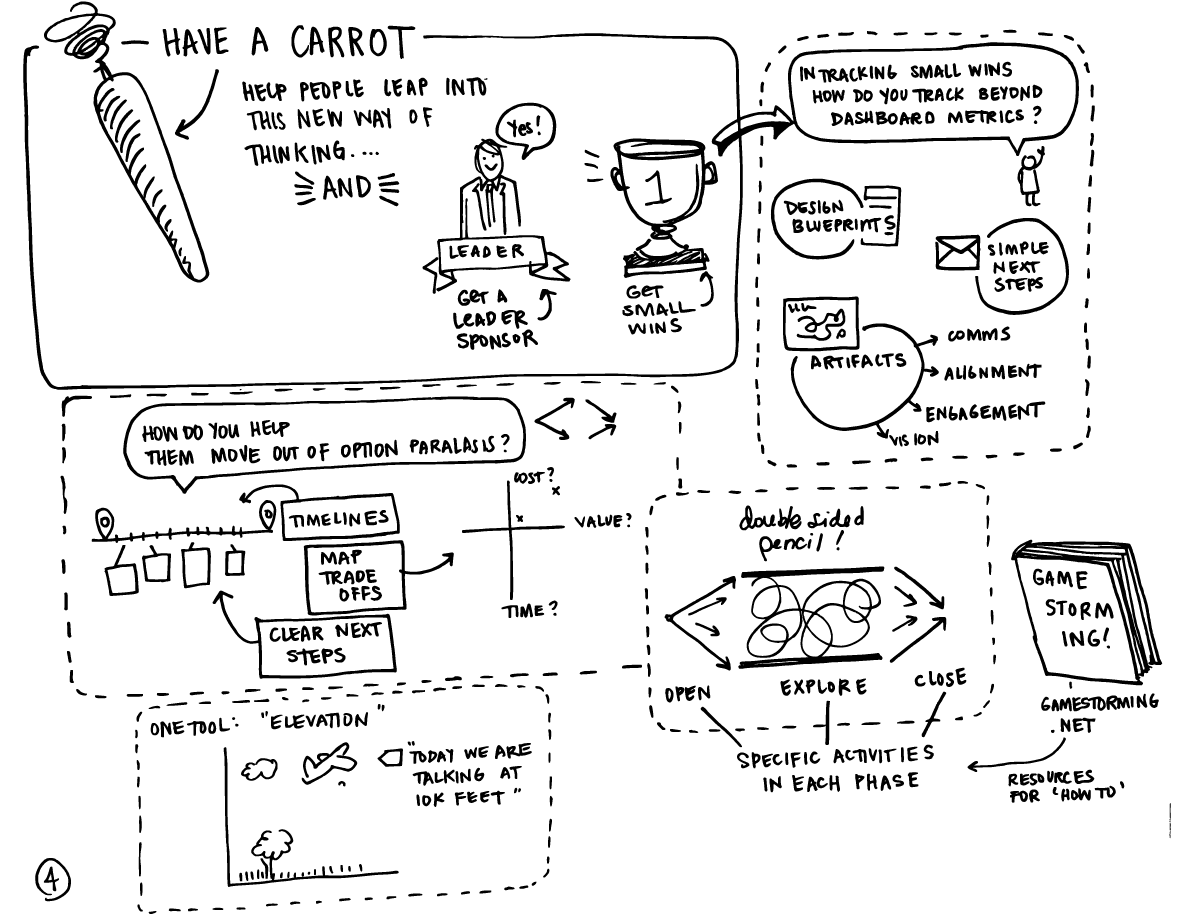 HAVE A CARROT
HELP PEOPLE LEAP INTO
THIS NEW WAY OF
THINKING....
AND
Yes!
LEADER
GET A
LEADER
SPONSOR
1
GET
SMALL
WINS
IN TRACKING SMALL WINS
HOW DO YOU TRACK BEYOND
DASHBOARD METRICS?
DESIGN
BLUEPRINTS
SIMPLE
NEXT
STEPS
ARTIFACTS
COMMS
ALIGNMENT
ENGAGEMENT
VISION
HOW DO YOU HELP
THEM MOVE OUT OF OPTION PARALASIS?
TIMELINES
MAP
TRADE
OFFS
CLEAR NEXT
STEPS
COST?
x
x
VALUE?
TIME?
double sided
pencil!
OPEN
EXPLORE
CLOSE
SPECIFIC ACTIVITIES
IN EACH PHASE
GAME
STORM
ING!
GAMESTORMING
.NET
RESOURCES
FOR 'HOW TO'
ONE TOOL: "ELEVATION"
"TODAY WE ARE
TALKING AT
10K FEET"
4